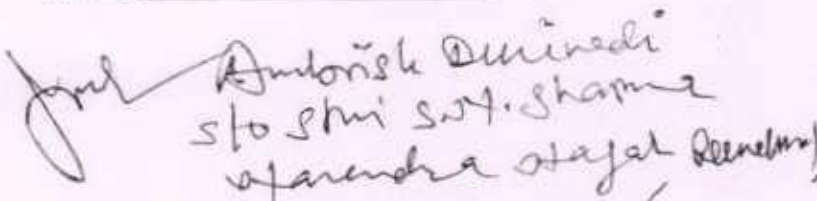 Ambrish Dwivedi
S/o Shri S.N. Sharma
Narendra Nagar